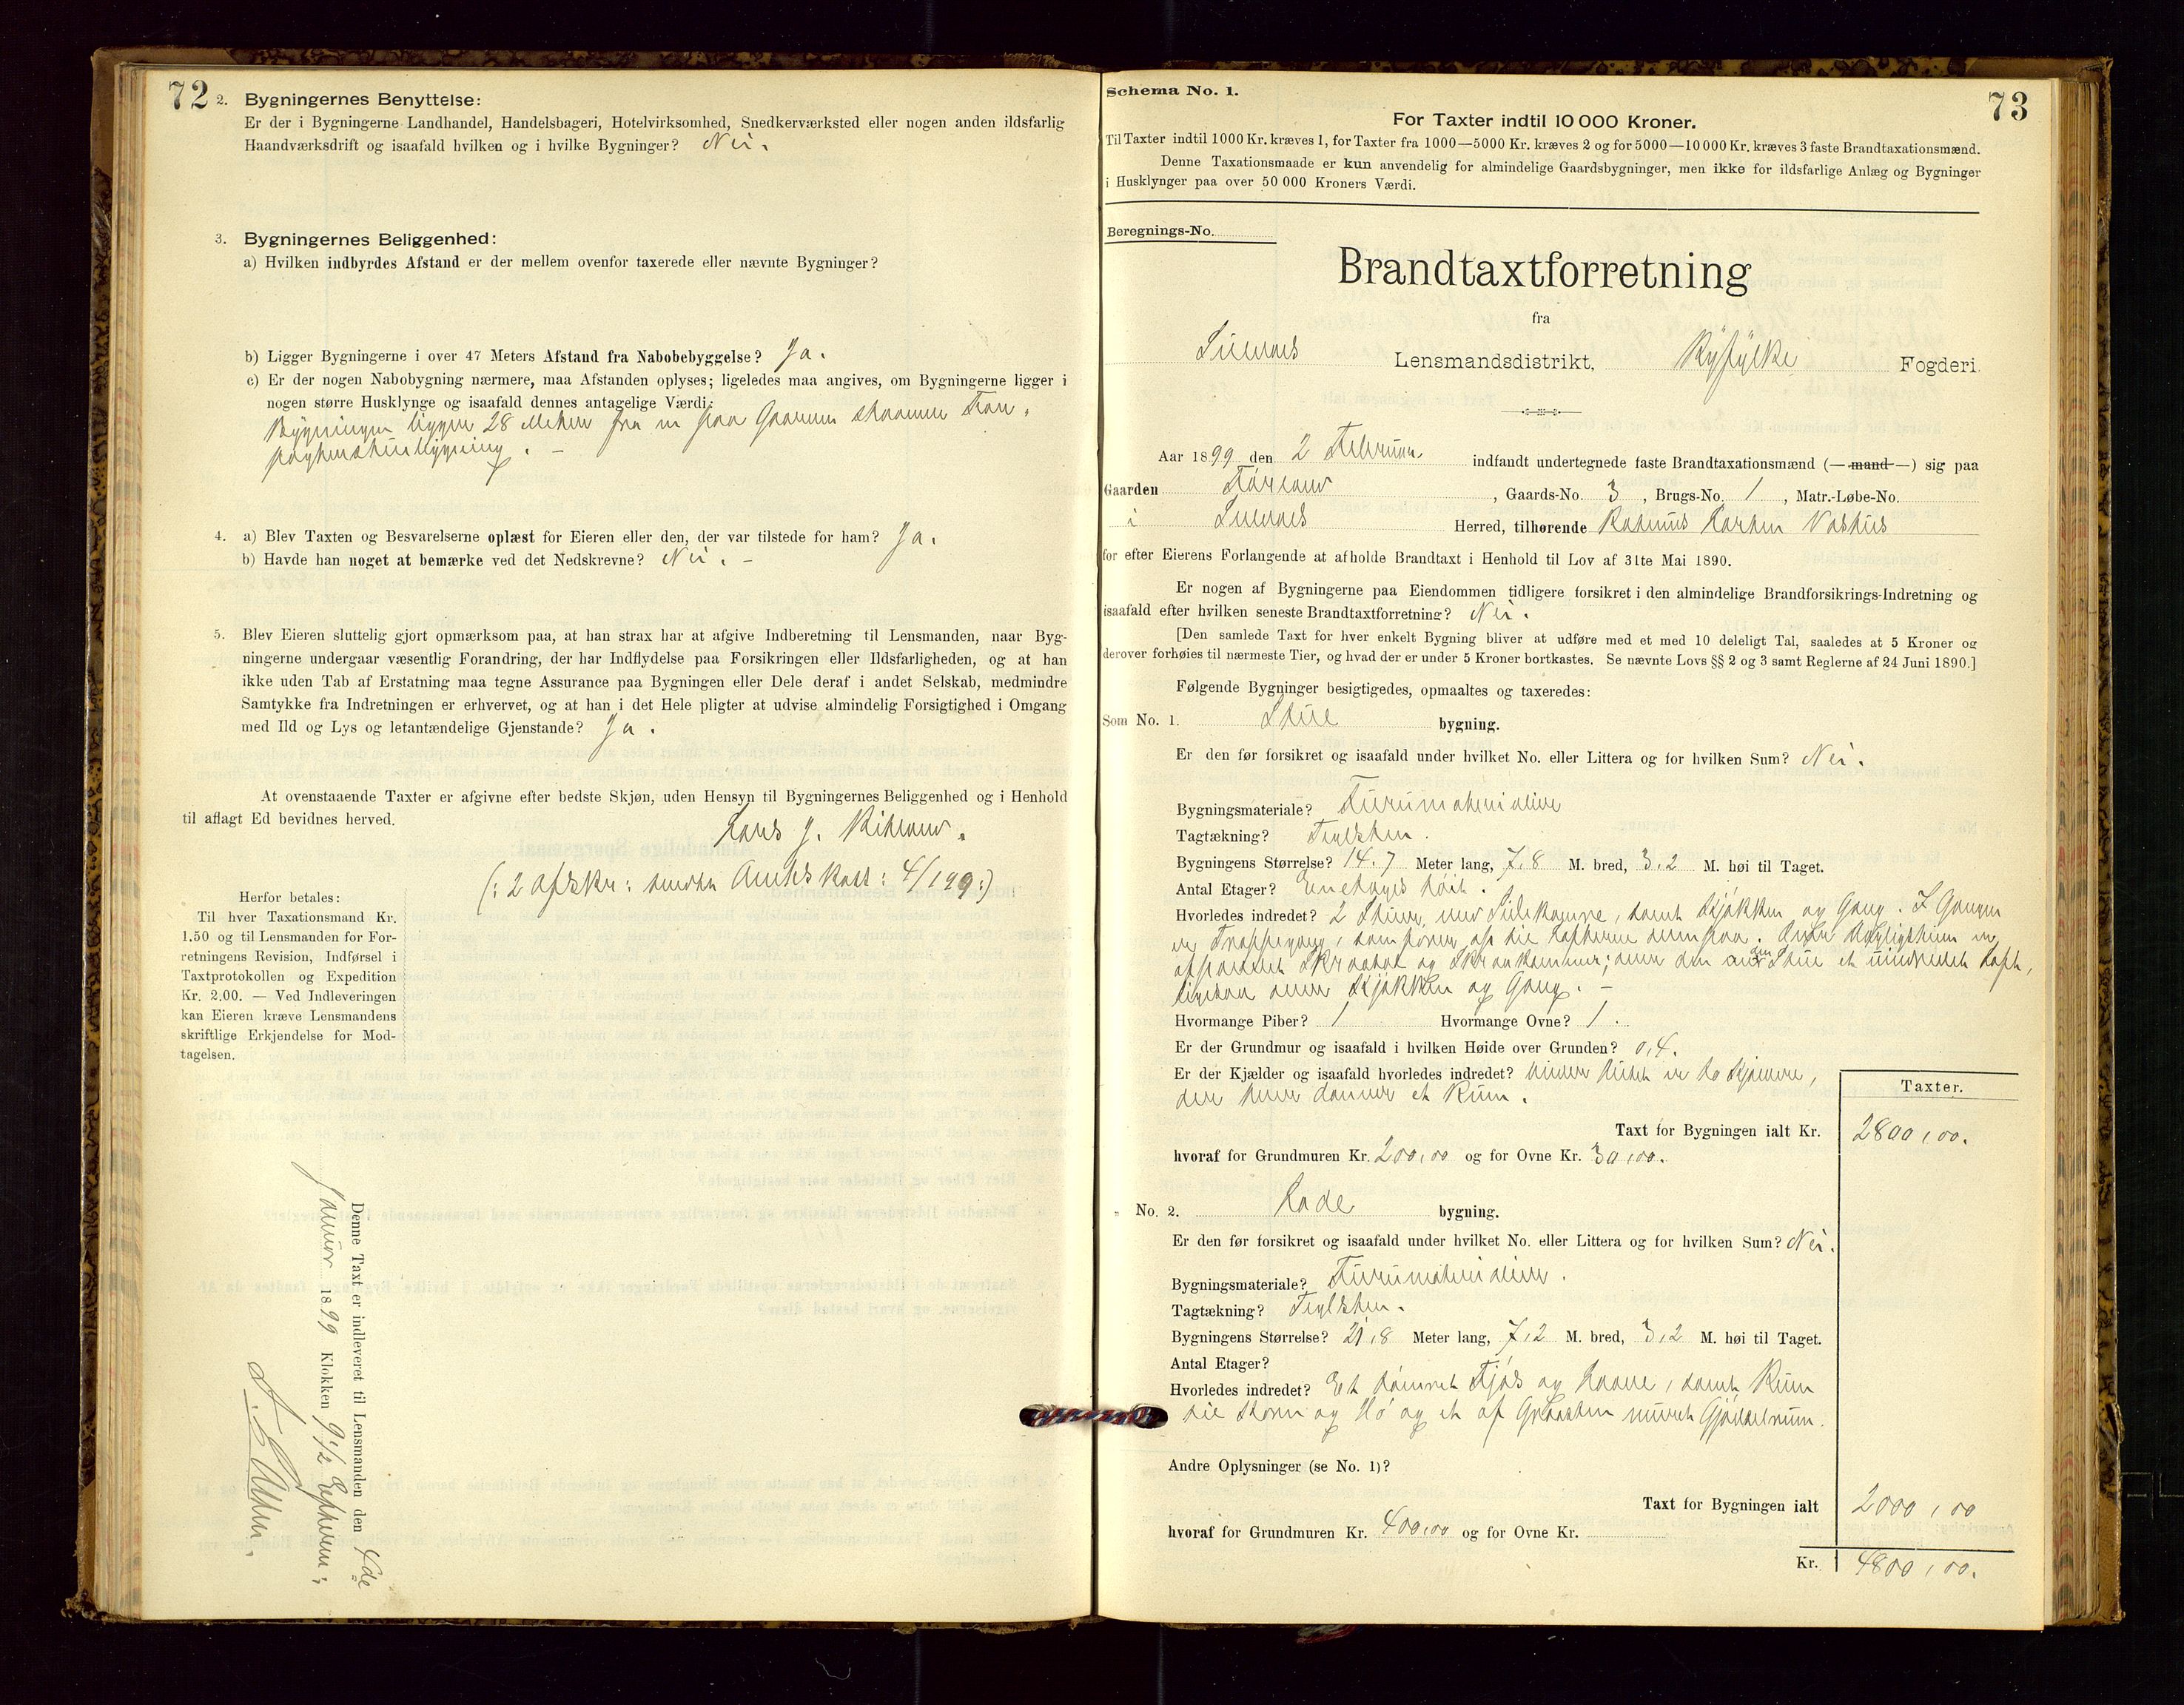 72
2. Bygningernes Benyttelse:
Er der i Bygningerne Landhandel, Handelsbageri, Hotelvirksomhed, Snedkerværksted eller nogen anden ildsfarlig
Haandværksdrift og isaafald hvilken og i hvilke Bygninger? Nei.
3. Bygningernes Beliggenhed:
a) Hvilken indbyrdes Afstand er der mellem ovenfor taxerede eller nævnte Bygninger?
b) Ligger Bygningerne i over 47 Meters Afstand fra Nabobebyggelse? Ja.
c) Er der nogen Nabobygning nærmere, maa Afstanden oplyses; ligeledes maa angives, om Bygningerne ligger i
nogen større Husklynge og isaafald dennes antagelige Værdi:
Bygningen ligger 28 Meter fra en paa Gaarden
4. a) Blev Taxten og Besvarelserne oplæst for Eieren eller den, der var tilstede for ham? Ja.
b) Havde han noget at bemærke ved det Nedskrevne? Nei. -
5. Blev Eieren sluttelig gjort opmærksom paa, at han strax har at afgive Indberetning til Lensmanden, naar Byg-
ningerne undergaar væsentlig Forandring, der har Indflydelse paa Forsikringen eller Ildsfarligheden, og at han
ikke uden Tab af Erstatning maa tegne Assurance paa Bygningen eller Dele deraf i andet Selskab, medmindre
Samtykke fra Indretningen er erhvervet, og at han i det Hele pligter at udvise almindelig Forsigtighed i Omgang
med Ild og Lys og letantændelige Gjenstande? Ja.
At ovenstaaende Taxter er afgivne efter bedste Skjøn, uden Hensyn til Bygningernes Beliggenhed og i Henhold
til aflagt Ed bevidnes herved.
(: 2 Afskr: sendte 4/1 99:)
Herfor betales:
Til hver Taxationsmand Kr.
1.50 og til Lensmanden for For-
retningens Revision, Indførsel i
Taxtprotokollen og Expedition
Kr. 2.00. — Ved Indleveringen
kan Eieren kræve Lensmandens
skriftlige Erkjendelse for Mod-
tagelsen.
Denne Taxt er indleveret til Lensmanden den 4de
Januar 1899 Klokken 9 1/2 Efterm:
73
Schema No. 1.
For Taxter indtil 10 000 Kroner.
Til Taxter indtil 1000 Kr. kræves 1, for Taxter fra 1000—5000 Kr. kræves 2 og for 5000—10 000 Kr. kræves 3 faste Brandtaxationsmænd.
Denne Taxationsmaade er kun anvendelig for almindelige Gaardsbygninger, men ikke for ildsfarlige Anlæg og Bygninger
i Husklynger paa over 50 000 Kroners Værdi.
Beregnings-No.
Brandtaxtforretning
fra
Lensmandsdistrikt, Ryfylke Fogderi.
Aar 1899 den 2 Februar indfandt undertegnede faste Brandtaxationsmænd (—mand—) sig paa
Gaarden , Gaards-No. 3 , Brugs-No. 1 , Matr.-Løbe-No.
i Herred, tilhørende Rasmus Karsten
for efter Eierens Forlangende at afholde Brandtaxt i Henhold til Lov af 31te Mai 1890.
Er nogen af Bygningerne paa Eiendommen tidligere forsikret i den almindelige Brandforsikrings-Indretning og
isaafald efter hvilken seneste Brandtaxtforretning? Nei.
[Den samlede Taxt for hver enkelt Bygning bliver at udføre med et med 10 deleligt Tal, saaledes at 5 Kroner og
derover forhøies til nærmeste Tier, og hvad der er under 5 Kroner bortkastes. Se nævnte Lovs §§ 2 og 3 samt Reglerne af 24 Juni 1890.]
Følgende Bygninger besigtigedes, opmaaltes og taxeredes:
Som No. 1. Stue bygning.
Er den før forsikret og isaafald under hvilket No. eller Littera og for hvilken Sum? Nei.
Bygningsmateriale? Furumaterialier
Tagtækning? Teglsten.
Bygningens Størrelse? 14.7 Meter lang, 7.8 M. bred, 3.2 M. høi til Taget.
Antal Etager? Enetages høit.
Hvorledes indredet? 2 Stuer med Sidekamre, samt Kjøkken og Gang. I Gangen
er Trappegang, som fører op til Lofterne ovenpaa.
ligesaa over Kjøkken og Gang. -
Hvormange Piber? 1 Hvormange Ovne? 1.
Er der Grundmur og isaafald i hvilken Høide over Grunden? 0,4.
Er der Kjælder og isaafald hvorledes indredet? under Huset er to Kjældere,
der hver danner et Rum.
Taxter.
Taxt for Bygningen ialt Kr. 2800,00.
hvoraf for Grundmuren Kr. 200,00 og for Ovne Kr. 30,00.
" No. 2. Lade bygning.
Er den før forsikret og isaafald under hvilket No. eller Littera og for hvilken Sum? Nei.
Bygningsmateriale? Furumaterialier.
Tagtækning? Teglsten.
Bygningens Størrelse? 21,8 Meter lang, 7,2 M. bred, 3,2 M. høi til Taget.
Antal Etager?
Hvorledes indredet? Et tømret Fjøs og Laave, samt Rum
til Korn og Hø og et af Graasten muret Gjødselrum.
Andre Oplysninger (se No. 1)?
Taxt for Bygningen ialt 2000,00
hvoraf for Grundmuren Kr. 400,00 og for Ovne Kr.
Kr. 4800,00.